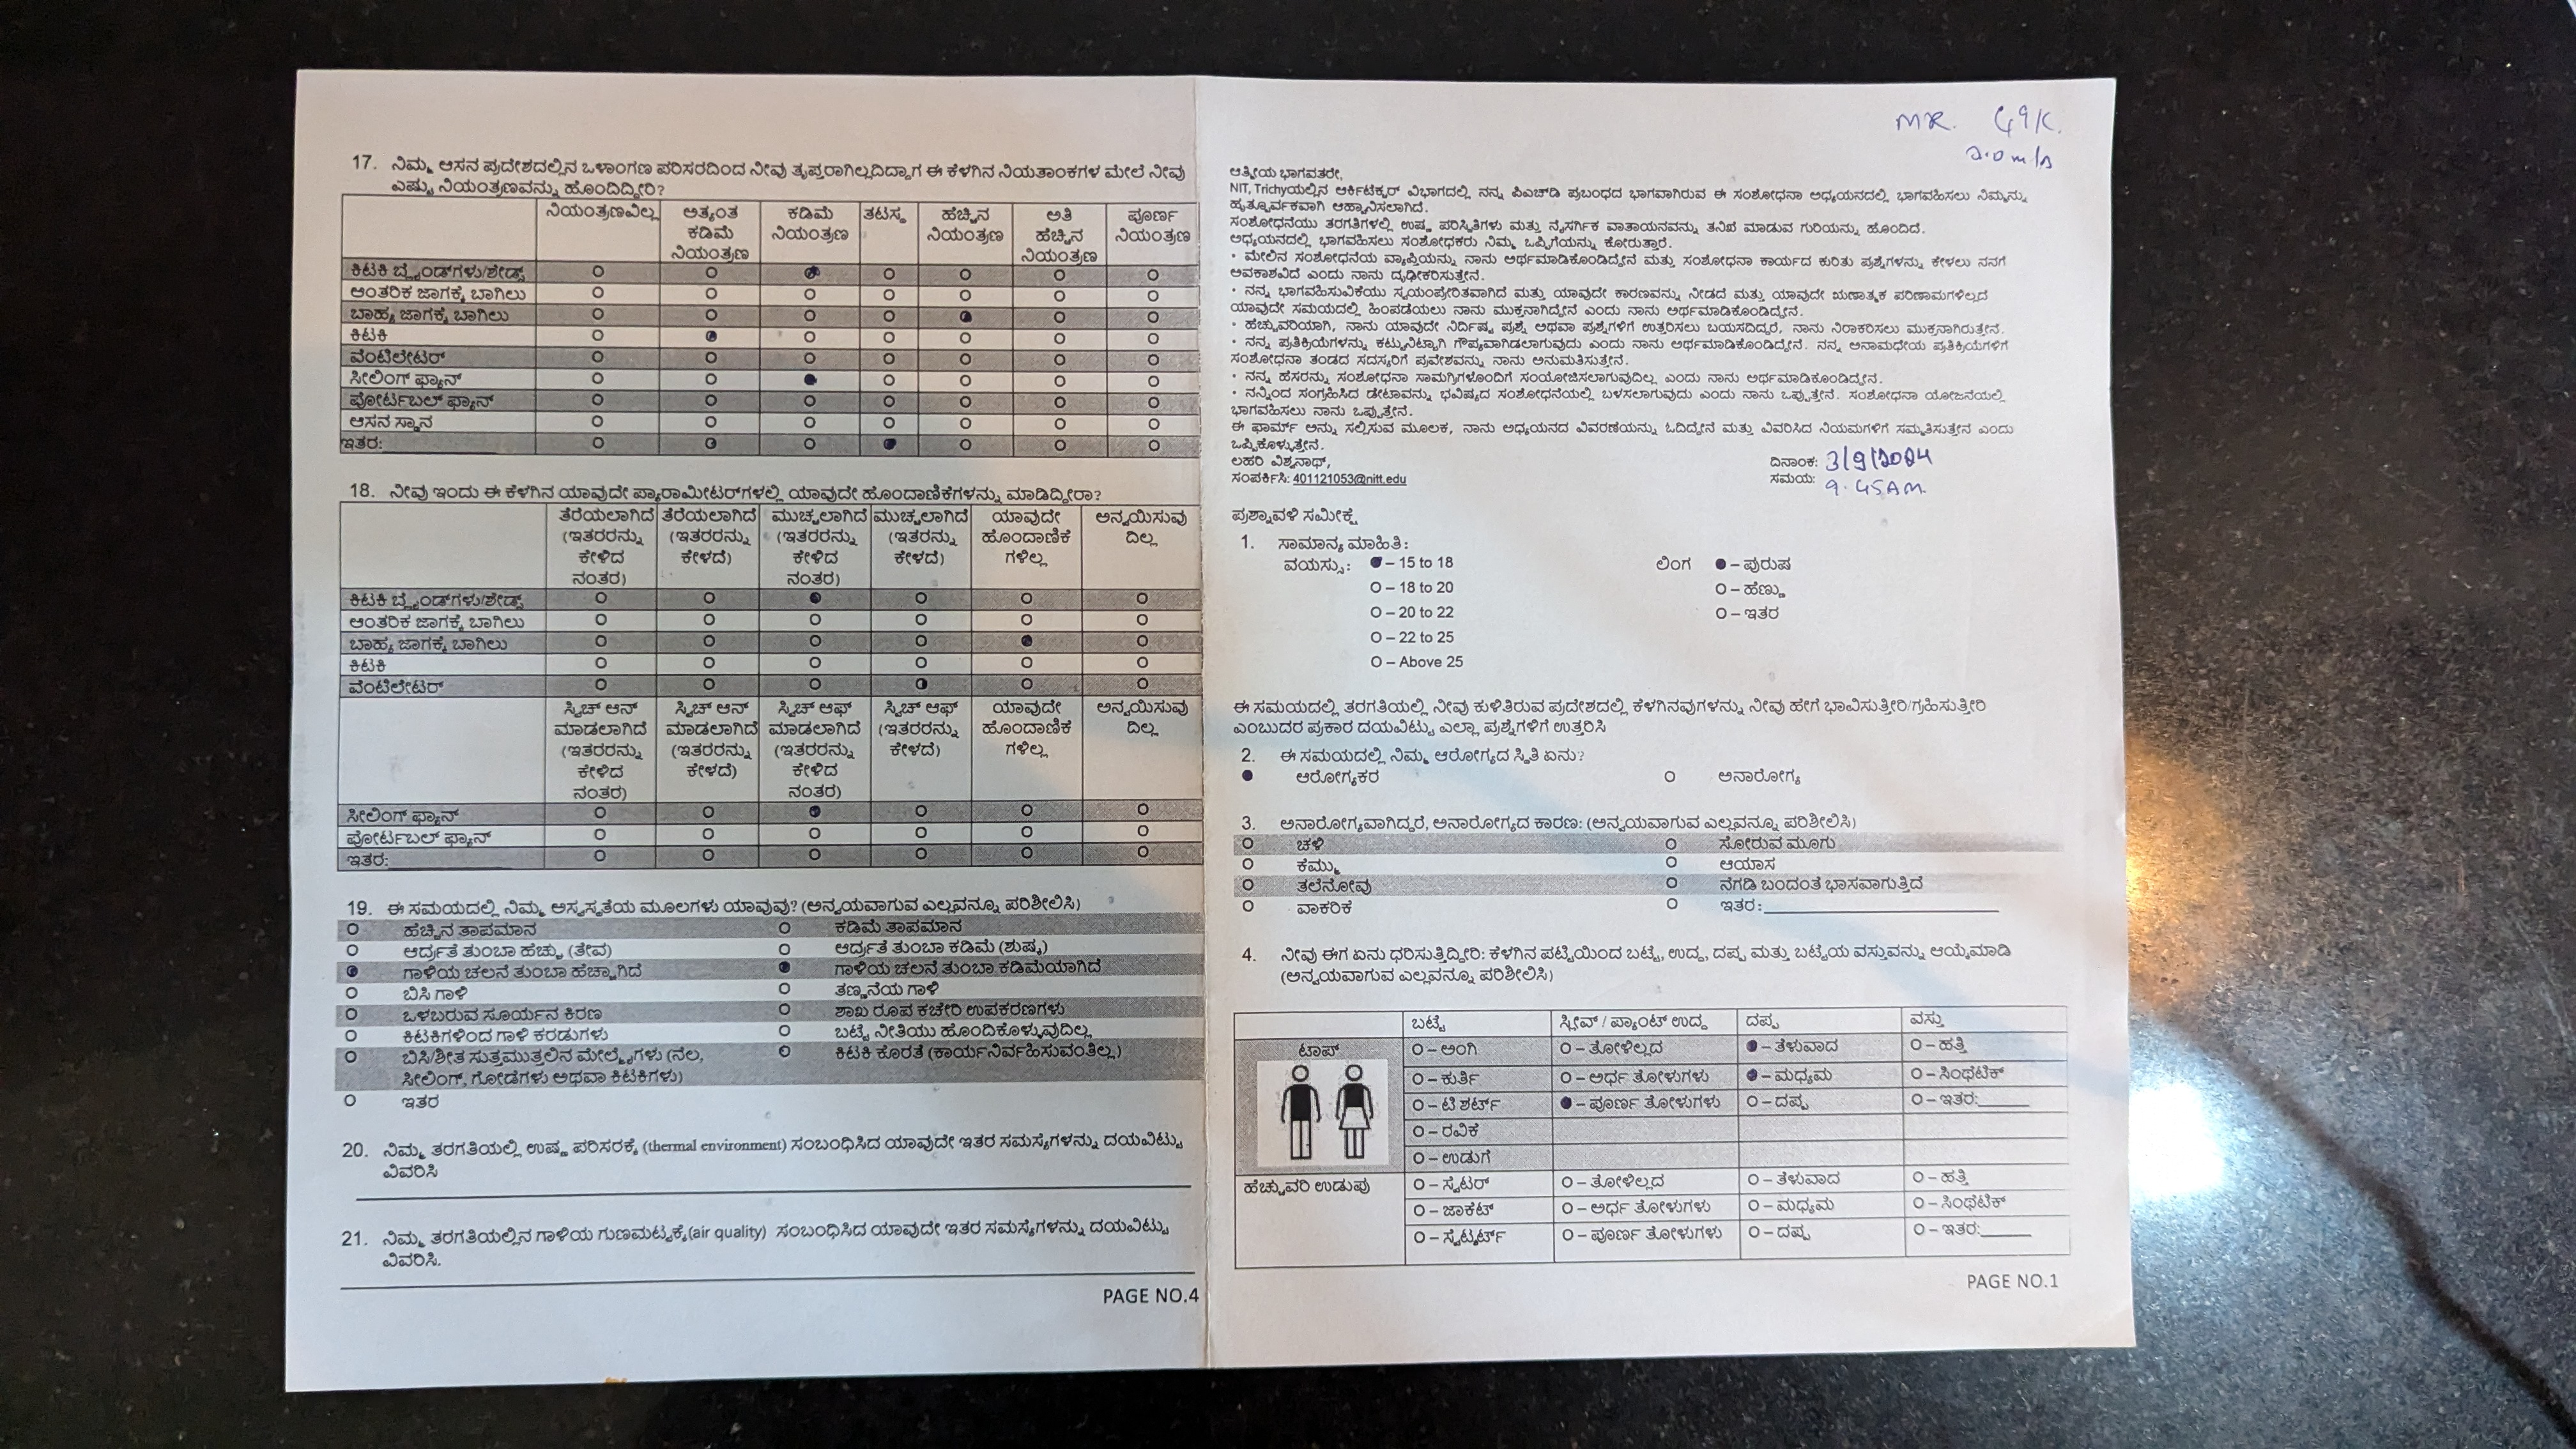 17. ನಿಮ್ಮ ಆಸನ ಪ್ರದೇಶದಲ್ಲಿನ ಒಳಾಂಗಣ ಪರಿಸರದಿಂದ ನೀವು ತೃಪ್ತರಾಗಿಲ್ಲದಿದ್ದಾಗ ಈ ಕೆಳಗಿನ ನಿಯತಾಂಕಗಳ ಮೇಲೆ ನೀವು
ಎಷ್ಟು ನಿಯಂತ್ರಣವನ್ನು ಹೊಂದಿದ್ದೀರಿ?
ನಿಯಂತ್ರಣವಿಲ್ಲ ಅತ್ಯಂತ ಕಡಿಮೆ ನಿಯಂತ್ರಣ ಕಡಿಮೆ ನಿಯಂತ್ರಣ ತಟಸ್ಥ ಹೆಚ್ಚಿನ ನಿಯಂತ್ರಣ ಅತಿ ಹೆಚ್ಚಿನ ನಿಯಂತ್ರಣ ಪೂರ್ಣ ನಿಯಂತ್ರಣ
ಕಿಟಕಿ ಬ್ಲೈಂಡ್‌ಗಳು/ಶೇಡ್ಸ್
ಆಂತರಿಕ ಜಾಗಕ್ಕೆ ಬಾಗಿಲು
ಬಾಹ್ಯ ಜಾಗಕ್ಕೆ ಬಾಗಿಲು
ಕಿಟಕಿ
ವೆಂಟಿಲೇಟರ್
ಸೀಲಿಂಗ್ ಫ್ಯಾನ್
ಪೋರ್ಟಬಲ್ ಫ್ಯಾನ್
ಆಸನ ಸ್ಥಾನ
ಇತರ:
18. ನೀವು ಇಂದು ಈ ಕೆಳಗಿನ ಯಾವುದೇ ಪ್ಯಾರಾಮೀಟರ್‌ಗಳಲ್ಲಿ ಯಾವುದೇ ಹೊಂದಾಣಿಕೆಗಳನ್ನು ಮಾಡಿದ್ದೀರಾ?
ತೆರೆಯಲಾಗಿದೆ (ಇತರರನ್ನು ಕೇಳಿದ ನಂತರ) ತೆರೆಯಲಾಗಿದೆ (ಇತರರನ್ನು ಕೇಳದೆ) ಮುಚ್ಚಲಾಗಿದೆ (ಇತರರನ್ನು ಕೇಳಿದ ನಂತರ) ಮುಚ್ಚಲಾಗಿದೆ (ಇತರರನ್ನು ಕೇಳದೆ) ಯಾವುದೇ ಹೊಂದಾಣಿಕೆ ಗಳಿಲ್ಲ ಅನ್ವಯಿಸುವು ದಿಲ್ಲ
ಕಿಟಕಿ ಬ್ಲೈಂಡ್‌ಗಳು/ಶೇಡ್ಸ್
ಆಂತರಿಕ ಜಾಗಕ್ಕೆ ಬಾಗಿಲು
ಬಾಹ್ಯ ಜಾಗಕ್ಕೆ ಬಾಗಿಲು
ಕಿಟಕಿ
ವೆಂಟಿಲೇಟರ್
ಸ್ವಿಚ್ ಆನ್ ಮಾಡಲಾಗಿದೆ (ಇತರರನ್ನು ಕೇಳಿದ ನಂತರ) ಸ್ವಿಚ್ ಆನ್ ಮಾಡಲಾಗಿದೆ (ಇತರರನ್ನು ಕೇಳದೆ) ಸ್ವಿಚ್ ಆಫ್ ಮಾಡಲಾಗಿದೆ (ಇತರರನ್ನು ಕೇಳಿದ ನಂತರ) ಸ್ವಿಚ್ ಆಫ್ (ಇತರರನ್ನು ಕೇಳದೆ) ಯಾವುದೇ ಹೊಂದಾಣಿಕೆ ಗಳಿಲ್ಲ ಅನ್ವಯಿಸುವು ದಿಲ್ಲ
ಸೀಲಿಂಗ್ ಫ್ಯಾನ್
ಪೋರ್ಟಬಲ್ ಫ್ಯಾನ್
ಇತರ:
19. ಈ ಸಮಯದಲ್ಲಿ ನಿಮ್ಮ ಅಸ್ವಸ್ಥತೆಯ ಮೂಲಗಳು ಯಾವುವು? (ಅನ್ವಯವಾಗುವ ಎಲ್ಲವನ್ನೂ ಪರಿಶೀಲಿಸಿ)
ಹೆಚ್ಚಿನ ತಾಪಮಾನ ಕಡಿಮೆ ತಾಪಮಾನ
ಆರ್ದ್ರತೆ ತುಂಬಾ ಹೆಚ್ಚು (ತೇವ) ಆರ್ದ್ರತೆ ತುಂಬಾ ಕಡಿಮೆ (ಶುಷ್ಕ)
ಗಾಳಿಯ ಚಲನೆ ತುಂಬಾ ಹೆಚ್ಚಾಗಿದೆ ಗಾಳಿಯ ಚಲನೆ ತುಂಬಾ ಕಡಿಮೆಯಾಗಿದೆ
ಬಿಸಿ ಗಾಳಿ ತಣ್ಣನೆಯ ಗಾಳಿ
ಒಳಬರುವ ಸೂರ್ಯನ ಕಿರಣ ಶಾಖ ರೂಪ ಕಚೇರಿ ಉಪಕರಣಗಳು
ಕಿಟಕಿಗಳಿಂದ ಗಾಳಿ ಕರಡುಗಳು ಬಟ್ಟೆ ನೀತಿಯು ಹೊಂದಿಕೊಳ್ಳುವುದಿಲ್ಲ
ಬಿಸಿ/ಶೀತ ಸುತ್ತಮುತ್ತಲಿನ ಮೇಲ್ಮೈಗಳು (ನೆಲ, ಕಿಟಕಿ ಕೊರತೆ (ಕಾರ್ಯನಿರ್ವಹಿಸುವಂತಿಲ್ಲ)
ಸೀಲಿಂಗ್, ಗೋಡೆಗಳು ಅಥವಾ ಕಿಟಕಿಗಳು)
ಇತರ
20. ನಿಮ್ಮ ತರಗತಿಯಲ್ಲಿ ಉಷ್ಣ ಪರಿಸರಕ್ಕೆ (thermal environment) ಸಂಬಂಧಿಸಿದ ಯಾವುದೇ ಇತರ ಸಮಸ್ಯೆಗಳನ್ನು ದಯವಿಟ್ಟು
ವಿವರಿಸಿ
21. ನಿಮ್ಮ ತರಗತಿಯಲ್ಲಿನ ಗಾಳಿಯ ಗುಣಮಟ್ಟಕ್ಕೆ(air quality) ಸಂಬಂಧಿಸಿದ ಯಾವುದೇ ಇತರ ಸಮಸ್ಯೆಗಳನ್ನು ದಯವಿಟ್ಟು
ವಿವರಿಸಿ.
PAGE NO.4
MR. 49/C.
2.0 m/s
ಆತ್ಮೀಯ ಭಾಗವತರೇ,
NIT, Trichyಯಲ್ಲಿನ ಆರ್ಕಿಟೆಕ್ಚರ್ ವಿಭಾಗದಲ್ಲಿ ನನ್ನ ಪಿಎಚ್‌ಡಿ ಪ್ರಬಂಧದ ಭಾಗವಾಗಿರುವ ಈ ಸಂಶೋಧನಾ ಅಧ್ಯಯನದಲ್ಲಿ ಭಾಗವಹಿಸಲು ನಿಮ್ಮನ್ನು
ಹೃತ್ಪೂರ್ವಕವಾಗಿ ಆಹ್ವಾನಿಸಲಾಗಿದೆ.
ಸಂಶೋಧನೆಯು ತರಗತಿಗಳಲ್ಲಿ ಉಷ್ಣ ಪರಿಸ್ಥಿತಿಗಳು ಮತ್ತು ನೈಸರ್ಗಿಕ ವಾತಾಯನವನ್ನು ತನಿಖೆ ಮಾಡುವ ಗುರಿಯನ್ನು ಹೊಂದಿದೆ.
ಅಧ್ಯಯನದಲ್ಲಿ ಭಾಗವಹಿಸಲು ಸಂಶೋಧಕರು ನಿಮ್ಮ ಒಪ್ಪಿಗೆಯನ್ನು ಕೋರುತ್ತಾರೆ.
• ಮೇಲಿನ ಸಂಶೋಧನೆಯ ವ್ಯಾಪ್ತಿಯನ್ನು ನಾನು ಅರ್ಥಮಾಡಿಕೊಂಡಿದ್ದೇನೆ ಮತ್ತು ಸಂಶೋಧನಾ ಕಾರ್ಯದ ಕುರಿತು ಪ್ರಶ್ನೆಗಳನ್ನು ಕೇಳಲು ನನಗೆ
ಅವಕಾಶವಿದೆ ಎಂದು ನಾನು ದೃಢೀಕರಿಸುತ್ತೇನೆ.
• ನನ್ನ ಭಾಗವಹಿಸುವಿಕೆಯು ಸ್ವಯಂಪ್ರೇರಿತವಾಗಿದೆ ಮತ್ತು ಯಾವುದೇ ಕಾರಣವನ್ನು ನೀಡದೆ ಮತ್ತು ಯಾವುದೇ ಋಣಾತ್ಮಕ ಪರಿಣಾಮಗಳಿಲ್ಲದೆ
ಯಾವುದೇ ಸಮಯದಲ್ಲಿ ಹಿಂಪಡೆಯಲು ನಾನು ಮುಕ್ತನಾಗಿದ್ದೇನೆ ಎಂದು ನಾನು ಅರ್ಥಮಾಡಿಕೊಂಡಿದ್ದೇನೆ.
• ಹೆಚ್ಚುವರಿಯಾಗಿ, ನಾನು ಯಾವುದೇ ನಿರ್ದಿಷ್ಟ ಪ್ರಶ್ನೆ ಅಥವಾ ಪ್ರಶ್ನೆಗಳಿಗೆ ಉತ್ತರಿಸಲು ಬಯಸದಿದ್ದರೆ, ನಾನು ನಿರಾಕರಿಸಲು ಮುಕ್ತನಾಗಿರುತ್ತೇನೆ.
• ನನ್ನ ಪ್ರತಿಕ್ರಿಯೆಗಳನ್ನು ಕಟ್ಟುನಿಟ್ಟಾಗಿ ಗೌಪ್ಯವಾಗಿಡಲಾಗುವುದು ಎಂದು ನಾನು ಅರ್ಥಮಾಡಿಕೊಂಡಿದ್ದೇನೆ. ನನ್ನ ಅನಾಮಧೇಯ ಪ್ರತಿಕ್ರಿಯೆಗಳಿಗೆ
ಸಂಶೋಧನಾ ತಂಡದ ಸದಸ್ಯರಿಗೆ ಪ್ರವೇಶವನ್ನು ನಾನು ಅನುಮತಿಸುತ್ತೇನೆ.
• ನನ್ನ ಹೆಸರನ್ನು ಸಂಶೋಧನಾ ಸಾಮಗ್ರಿಗಳೊಂದಿಗೆ ಸಂಯೋಜಿಸಲಾಗುವುದಿಲ್ಲ ಎಂದು ನಾನು ಅರ್ಥಮಾಡಿಕೊಂಡಿದ್ದೇನೆ.
• ನನ್ನಿಂದ ಸಂಗ್ರಹಿಸಿದ ಡೇಟಾವನ್ನು ಭವಿಷ್ಯದ ಸಂಶೋಧನೆಯಲ್ಲಿ ಬಳಸಲಾಗುವುದು ಎಂದು ನಾನು ಒಪ್ಪುತ್ತೇನೆ. ಸಂಶೋಧನಾ ಯೋಜನೆಯಲ್ಲಿ
ಭಾಗವಹಿಸಲು ನಾನು ಒಪ್ಪುತ್ತೇನೆ.
ಈ ಫಾರ್ಮ್ ಅನ್ನು ಸಲ್ಲಿಸುವ ಮೂಲಕ, ನಾನು ಅಧ್ಯಯನದ ವಿವರಣೆಯನ್ನು ಓದಿದ್ದೇನೆ ಮತ್ತು ವಿವರಿಸಿದ ನಿಯಮಗಳಿಗೆ ಸಮ್ಮತಿಸುತ್ತೇನೆ ಎಂದು
ಒಪ್ಪಿಕೊಳ್ಳುತ್ತೇನೆ.
ಲಹರಿ ವಿಶ್ವನಾಥ್, ದಿನಾಂಕ: 3/9/2024
ಸಂಪರ್ಕಿಸಿ: 401121053@nitt.edu ಸಮಯ: 9.45AM.
ಪ್ರಶ್ನಾವಳಿ ಸಮೀಕ್ಷೆ
1. ಸಾಮಾನ್ಯ ಮಾಹಿತಿ:
ವಯಸ್ಸು: – 15 to 18 ಲಿಂಗ – ಪುರುಷ
O – 18 to 20 O – ಹೆಣ್ಣು
O – 20 to 22 O – ಇತರ
O – 22 to 25
O – Above 25
ಈ ಸಮಯದಲ್ಲಿ ತರಗತಿಯಲ್ಲಿ ನೀವು ಕುಳಿತಿರುವ ಪ್ರದೇಶದಲ್ಲಿ ಕೆಳಗಿನವುಗಳನ್ನು ನೀವು ಹೇಗೆ ಭಾವಿಸುತ್ತೀರಿ/ಗ್ರಹಿಸುತ್ತೀರಿ
ಎಂಬುದರ ಪ್ರಕಾರ ದಯವಿಟ್ಟು ಎಲ್ಲಾ ಪ್ರಶ್ನೆಗಳಿಗೆ ಉತ್ತರಿಸಿ
2. ಈ ಸಮಯದಲ್ಲಿ ನಿಮ್ಮ ಆರೋಗ್ಯದ ಸ್ಥಿತಿ ಏನು?
ಆರೋಗ್ಯಕರ ಅನಾರೋಗ್ಯ
3. ಅನಾರೋಗ್ಯವಾಗಿದ್ದರೆ, ಅನಾರೋಗ್ಯದ ಕಾರಣ: (ಅನ್ವಯವಾಗುವ ಎಲ್ಲವನ್ನೂ ಪರಿಶೀಲಿಸಿ)
ಚಳಿ ಸೋರುವ ಮೂಗು
ಕೆಮ್ಮು ಆಯಾಸ
ತಲೆನೋವು ನೆಗಡಿ ಬಂದಂತೆ ಭಾಸವಾಗುತ್ತಿದೆ
ವಾಕರಿಕೆ ಇತರ:
4. ನೀವು ಈಗ ಏನು ಧರಿಸುತ್ತಿದ್ದೀರಿ: ಕೆಳಗಿನ ಪಟ್ಟಿಯಿಂದ ಬಟ್ಟೆ, ಉದ್ದ, ದಪ್ಪ ಮತ್ತು ಬಟ್ಟೆಯ ವಸ್ತುವನ್ನು ಆಯ್ಕೆಮಾಡಿ
(ಅನ್ವಯವಾಗುವ ಎಲ್ಲವನ್ನೂ ಪರಿಶೀಲಿಸಿ)
ಬಟ್ಟೆ ಸ್ಲೀವ್ / ಪ್ಯಾಂಟ್ ಉದ್ದ ದಪ್ಪ ವಸ್ತು
ಟಾಪ್ O – ಅಂಗಿ O – ತೋಳಿಲ್ಲದ – ತೆಳುವಾದ O – ಹತ್ತಿ
O – ಕುರ್ತಿ O – ಅರ್ಧ ತೋಳುಗಳು – ಮಧ್ಯಮ O – ಸಿಂಥೆಟಿಕ್
O – ಟಿ ಶರ್ಟ್ – ಪೂರ್ಣ ತೋಳುಗಳು O – ದಪ್ಪ O – ಇತರ:
O – ರವಿಕೆ
O – ಉಡುಗೆ
ಹೆಚ್ಚುವರಿ ಉಡುಪು O – ಸ್ವೆಟರ್ O – ತೋಳಿಲ್ಲದ O – ತೆಳುವಾದ O – ಹತ್ತಿ
O – ಜಾಕೆಟ್ O – ಅರ್ಧ ತೋಳುಗಳು O – ಮಧ್ಯಮ O – ಸಿಂಥೆಟಿಕ್
O – ಸ್ವೆಟ್ಶರ್ಟ್ O – ಪೂರ್ಣ ತೋಳುಗಳು O – ದಪ್ಪ O – ಇತರ:
PAGE NO.1